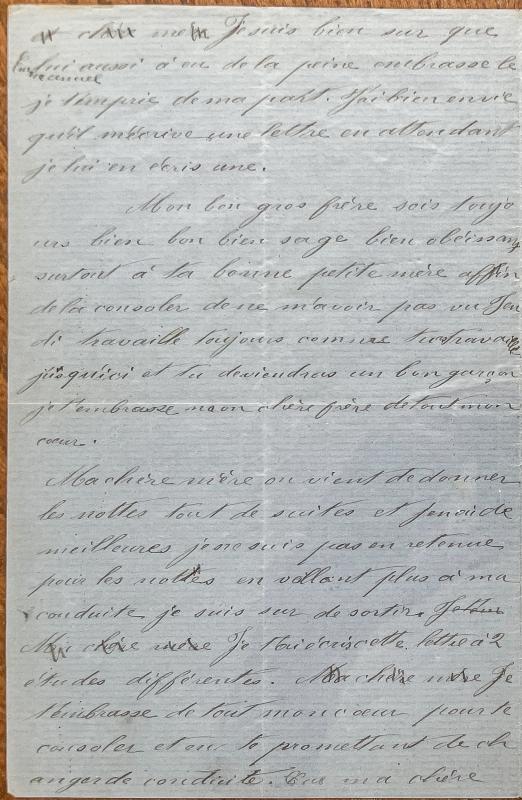 Je suis bien sur que
Emmanuel
lui aussi à eu de la peine embrasse le
je t'emprie de ma part. J'ai bien envie
qu'il m'écrive une lettre en attendant
je lui en écris une.
Mon bon gros frère sois toujo
urs bien bon bien sage bien obéissant
surtout à ta bonne petite mère affin
de la consoler de ne m'avoir pas vu Jeu
di travaille toujours comme tu travaille
jusquici et tu deviendras un bon garçon
je t'embrasse mon chère frère de tout mon
cœur.
Ma chère mère on vient de donner
les nottes tout de suites et j'en ai de
meilleures je ne suis pas en retenue
pour les nottes en veillant plus à ma
conduite je suis sur de sortir.
Ma chère mère Je t'ai écris cette lettre à 2
études différentes. Ma chère mère Je
t'embrasse de tout mon cœur pour te
consoler et en te promettant de ch
anger de conduite. Car ma chère